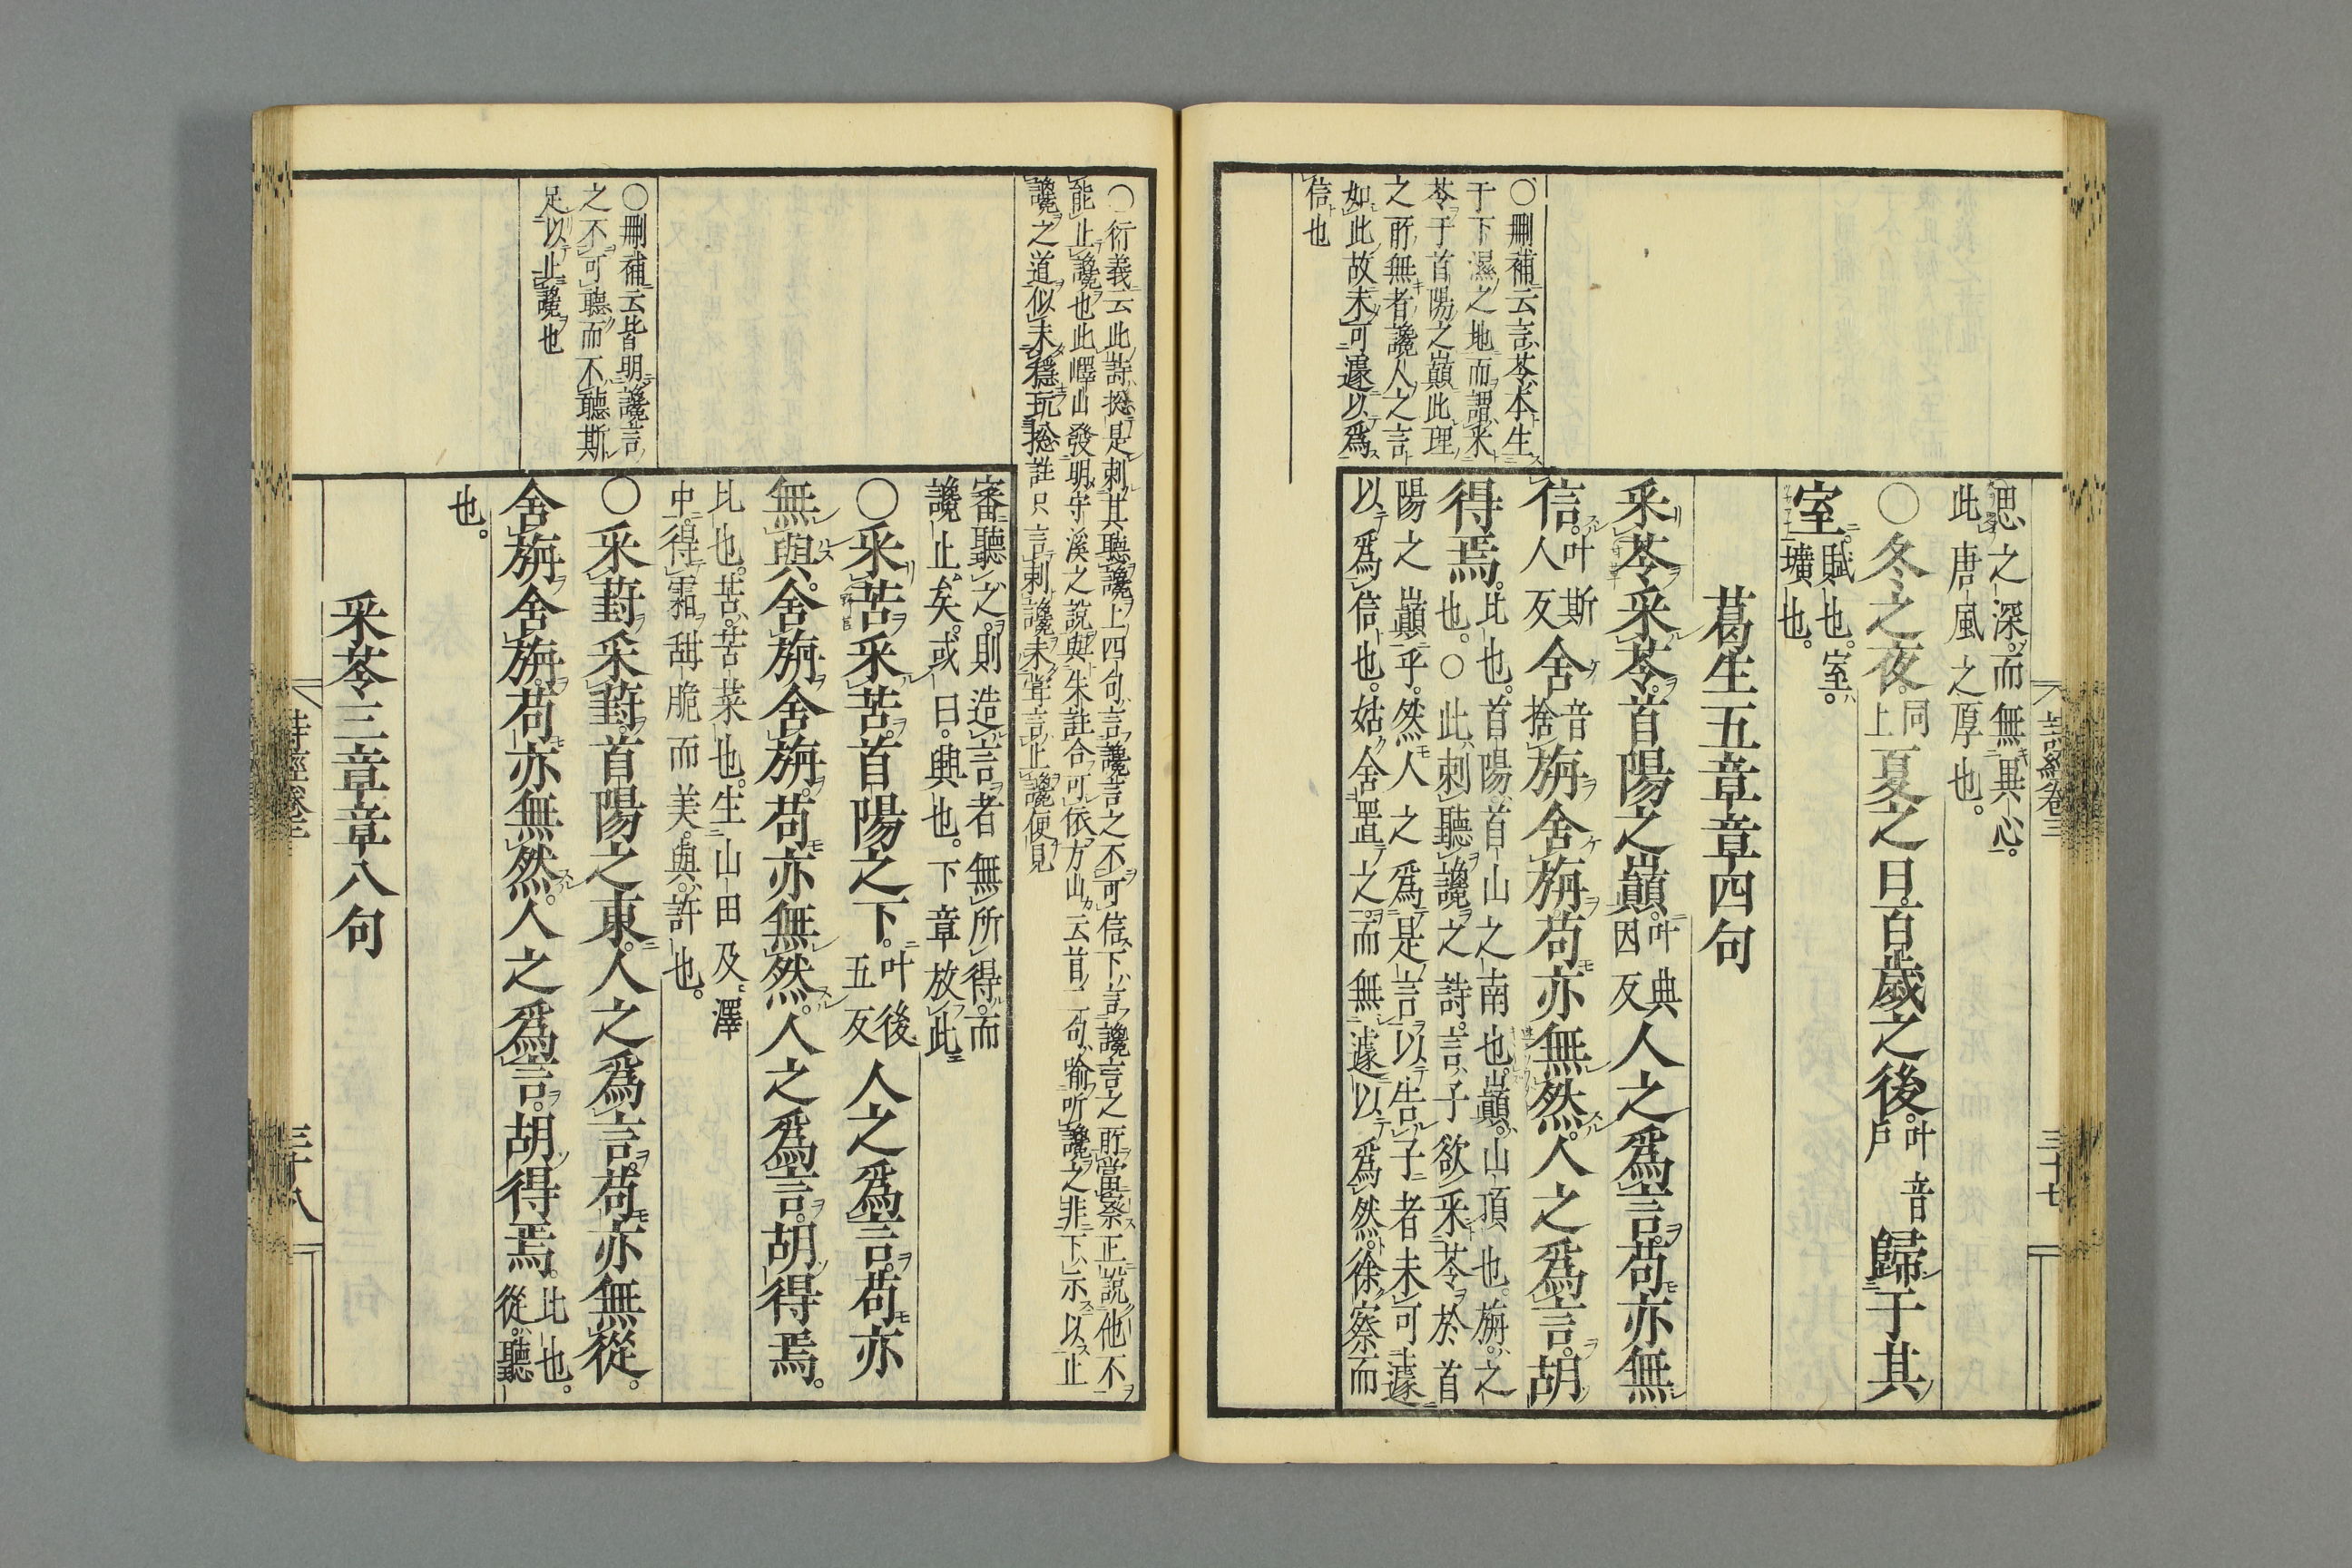 思之深而無異心。
此唐風之厚也。
○冬之夜。同上夏之日。百歲之後。叶音戶歸于其
室。賦也。室。壙也。
葛生五章章四句
采苓采苓。首陽之巔。叶典因反人之爲言。苟亦無
信。叶斯人反舍音捨旃舍旃。苟亦無然。人之爲言。胡
得焉。比也。首陽。首山之南也。巔。山頂也。旃。之
也。○此刺聽讒之詩。言子欲采苓於首
陽之巔乎。然人之爲是言以告子者未可遽
以爲信也。姑舍置之。而無遽以爲然。徐察而
○刪補云言苓本生
于下濕之地而謂采
苓于首陽之巔此理
之所無者讒人之言
如此故未可遽以爲
信也
詩經卷三
三十七
○衍義云此詩揔是刺其聽讒上四句言讒言之不可信下言讒言之所當察正說他不
能止讒也此嶧山發明守溪之說與朱註合可依方山云首二句喻听讒之非下示以止
讒之道似未穩玩揔註只言刺讒未嘗言止讒便見
審聽之。則造言者無所得。而
讒止矣。或曰。興也。下章放此
○采苦采苦。首陽之下。叶後五反人之爲言。苟亦
無與。舍旃舍旃。苟亦無然。人之爲言。胡得焉。
比也。苦。苦菜也。生山田及澤
中。得霜甜脆而美。與。許也。
○采葑采葑。首陽之東。人之爲言。苟亦無從。
舍旃舍旃。苟亦無然。人之爲言。胡得焉。比也。從。聽
也。
○刪補云皆明讒言
之不可聽而不聽斯
足以止讒也
采苓三章章八句
詩經卷三
三十八